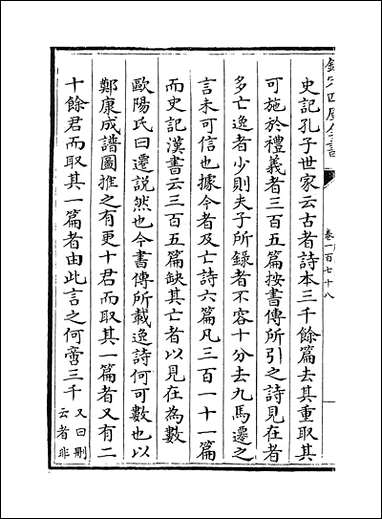 欽定四庫全書
卷一百七十八
史記孔子世家云古者詩本三千餘篇去其重取其
可施於禮義者三百五篇按書傳所引之詩見在者
多亡逸者少則夫子所錄者不容十分去九馬遷之
言未可信也據今者及亡詩六篇凡三百一十一篇
而史記漢書云三百五篇缺其亡者以見在為數
歐陽氏曰遷說然也今書傳所載逸詩何可數也以
鄭康成譜圖推之有更十君而取其一篇者又有二
十餘君而取其一篇者由此言之何啻三千
又曰刪
云者非